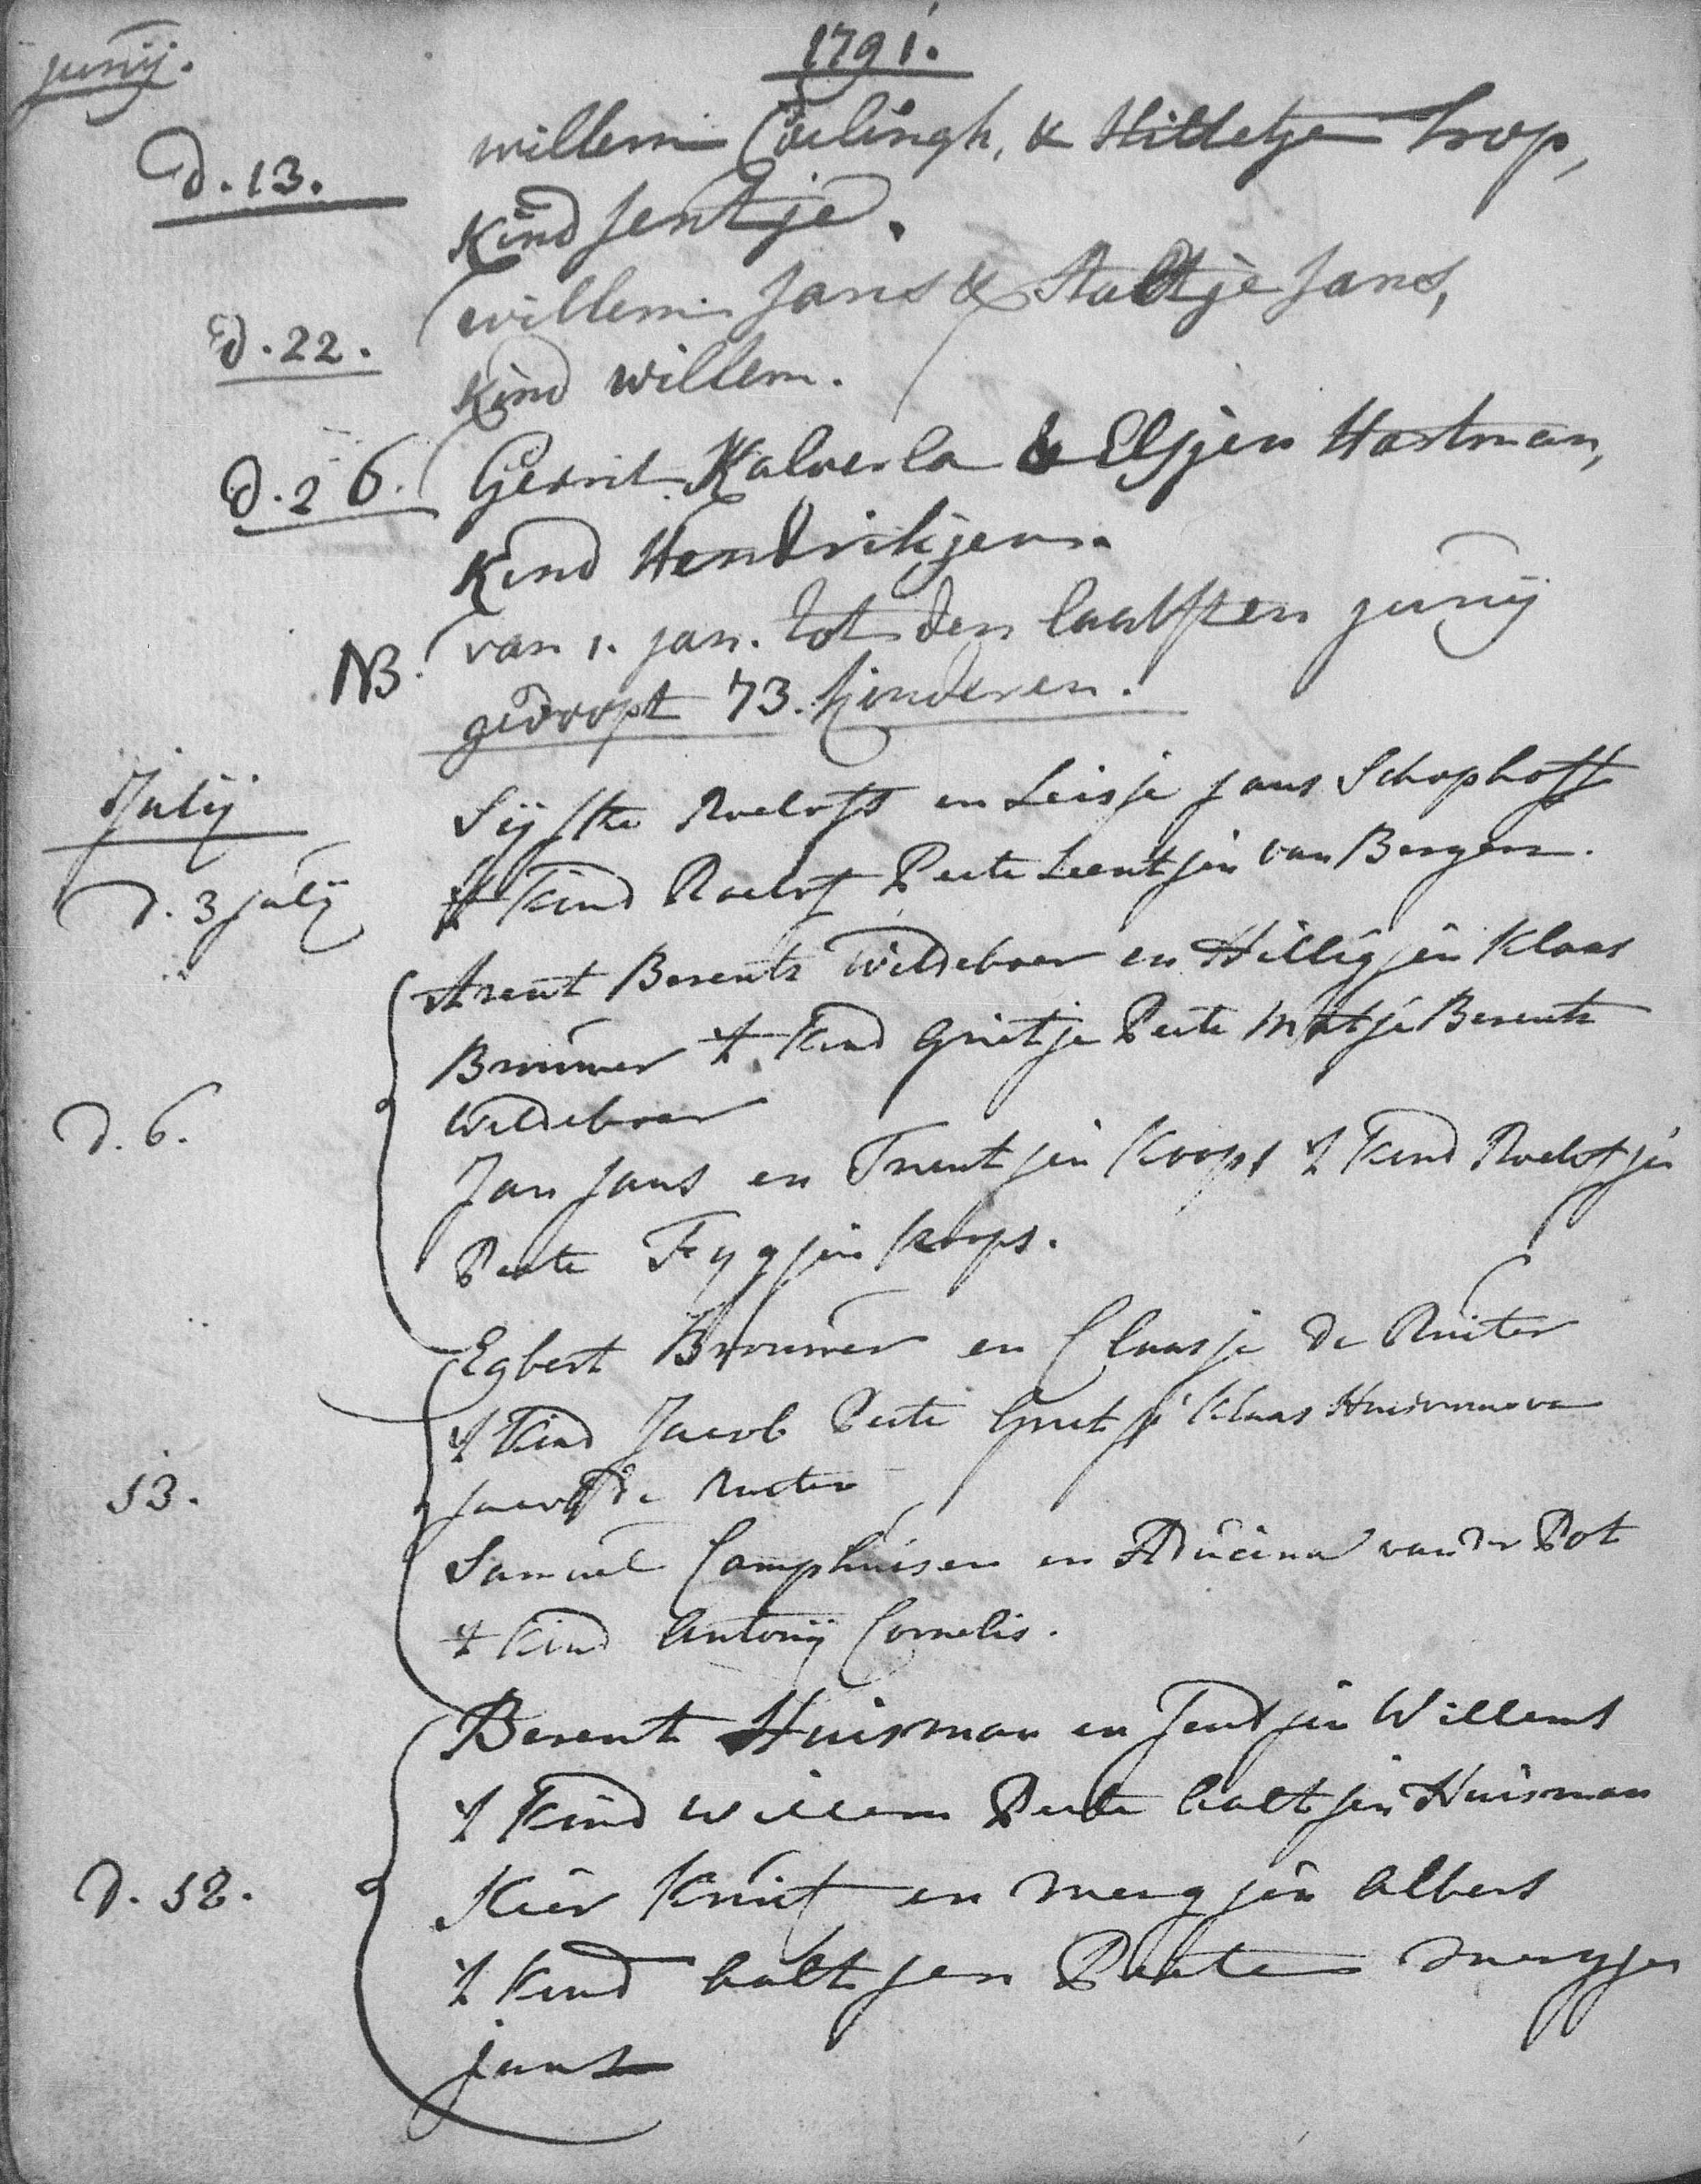 1791.
junij.
d. 13. willem & Hilletje Trop,
kind Jentje.
d. 22. willem Jans & Jans,
kind willem.
d. 26. Gerrit Kalverla & Elsjen Hartman,
kind Hendrikjen.
NB. van 1. jan. tot den laatsten junij
gedoopt 73. kinderen.
Julij
Roelofs en Leisje Jans Schophoff
d. 3 julij 't Kind Roelof Peete Leentjen van Bergen.
Arent Berents Wildeboer en Hilligjen Klaas
Brouwer 't Kind Grietje Peete Berents
d. 6. Wildeboer
Jan Jans en Trientjen Koops 't Kind Roelofjen
Peete Fygjen Koops.
Egbert Brouwer en Claasje de Ruiter
't Kind Jacob Peete Grietje Klaas
13. Jacob de Ruiter
Samuel Camphuisen en van der Pot
't Kind Antonij Cornelis.
Berent Huisman en Jentjen Willems
't Kind Willem Peete Aaltjen Huisman
d. 18. Kier Kruit en Mergjen Albers
't Kind Aaltjen Peete Mergjen
Jans